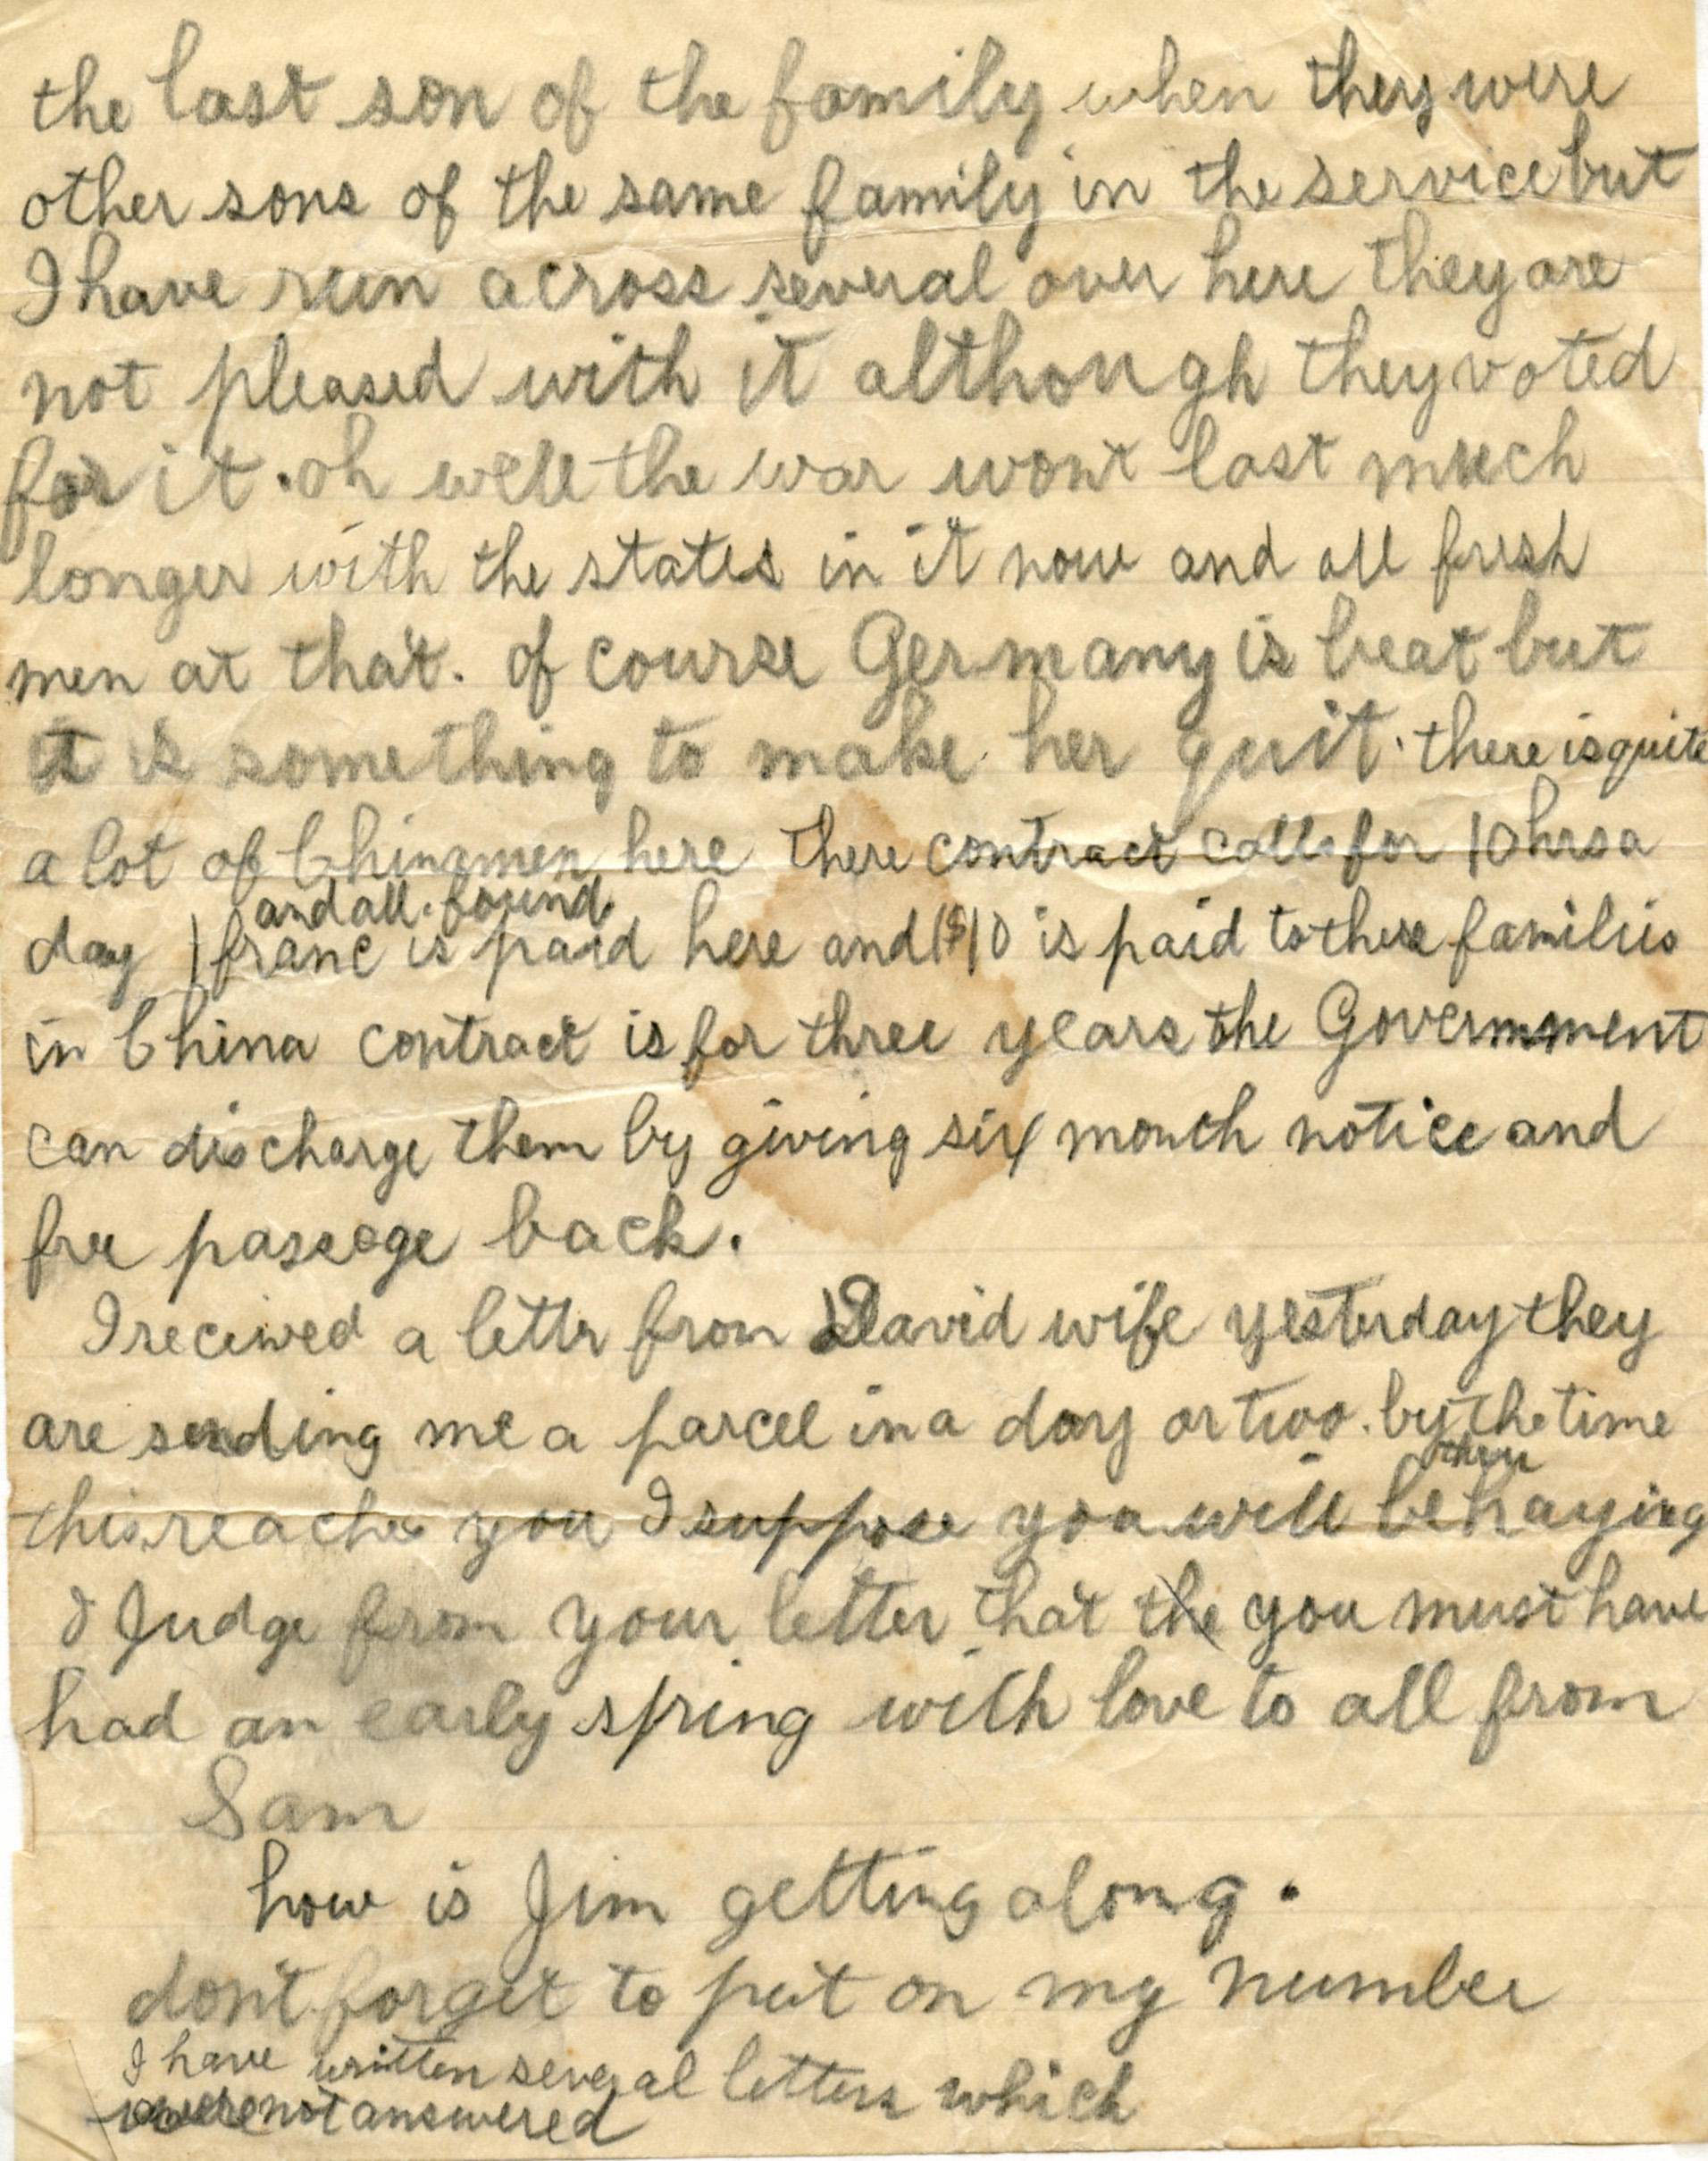 the last son of the family when they were
other sons of the same family in the service but
I have run across several over here they are
not pleased with it although they voted
for it. oh well the war wont last much
longer with the states in it now and all fresh
men at that. of course Germany is beat but
it is something to make her quit. there is quite
a lot of Chinamen here there contract calls for 10 hrs a
and all found.
day 1 franc is paid here and $10 is paid to there families
in China contract is for three years the Government
can discharge them by giving six month notice and
free passage back.
I recived a lettr from David wife yesterday they
are sending me a parcel in a day or two. by the time
then
this reaches you I suppose you will be haying
I Judge from your letter that the you must have
had an early spring with love to all from
Sam
how is Jim getting along.
don't forget to put on my number
I have written several letters which
were not answered